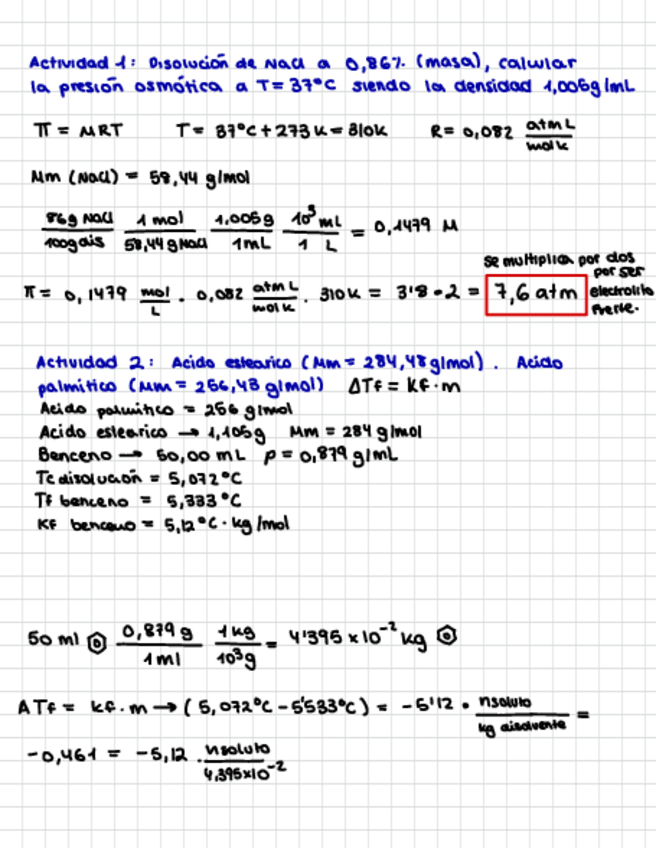 Actividad 1: Disolución de NaCl a 0,86% (masa), calcular
la presión osmótica a T= 37°C siendo la densidad 1,005g/mL
π = MRT T= 37°C+273K=310K R= 0,082 atm L / mol K
Mm (NaCl) = 58,44 g/mol
86g NaCl / 100g dis 1 mol / 58,44 g NaCl 1,005g / 1mL 10³ mL / 1 L = 0,1479 M
se multiplica por dos
por ser
π= 0,1479 mol / L · 0,082 atm L / mol K · 310K = 3'8·2 = 7,6 atm electrolito
fuerte.
Actividad 2: Acido estearico (Mm = 284,48g/mol). Acido
palmitico (Mm = 256,43 g/mol) ΔTf = Kf·m
Acido palmitico = 256 g/mol
Acido estearico → 1,105g Mm = 284 g/mol
Benceno → 50,00 mL ρ = 0,879 g/mL
Tc disolución = 5,072°C
Tf benceno = 5,333°C
Kf benceno = 5,12°C·kg/mol
50 ml 0,879 g / 1 ml 1 kg / 10³g = 4'395 x10⁻² kg
ΔTf = kf·m → (5,072°C - 5'533°C) = -5'12 · nsoluto / kg disolvente =
-0,461 = -5,12 · nsoluto / 4,395x10⁻²